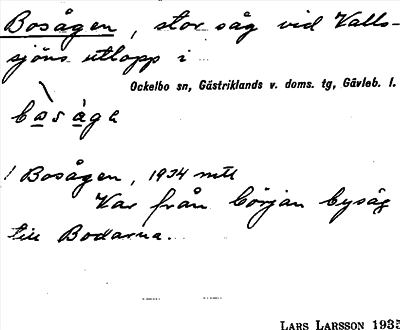 Bosågen, stor såg vid Valls-
sjöns utlopp i
Ockelbo sn, Gästriklands v. doms. tg, Gävleb. l.
Bosågen, 1934 mtl
Var från början bysåg
till Bodarna.
LARS LARSSON 1935